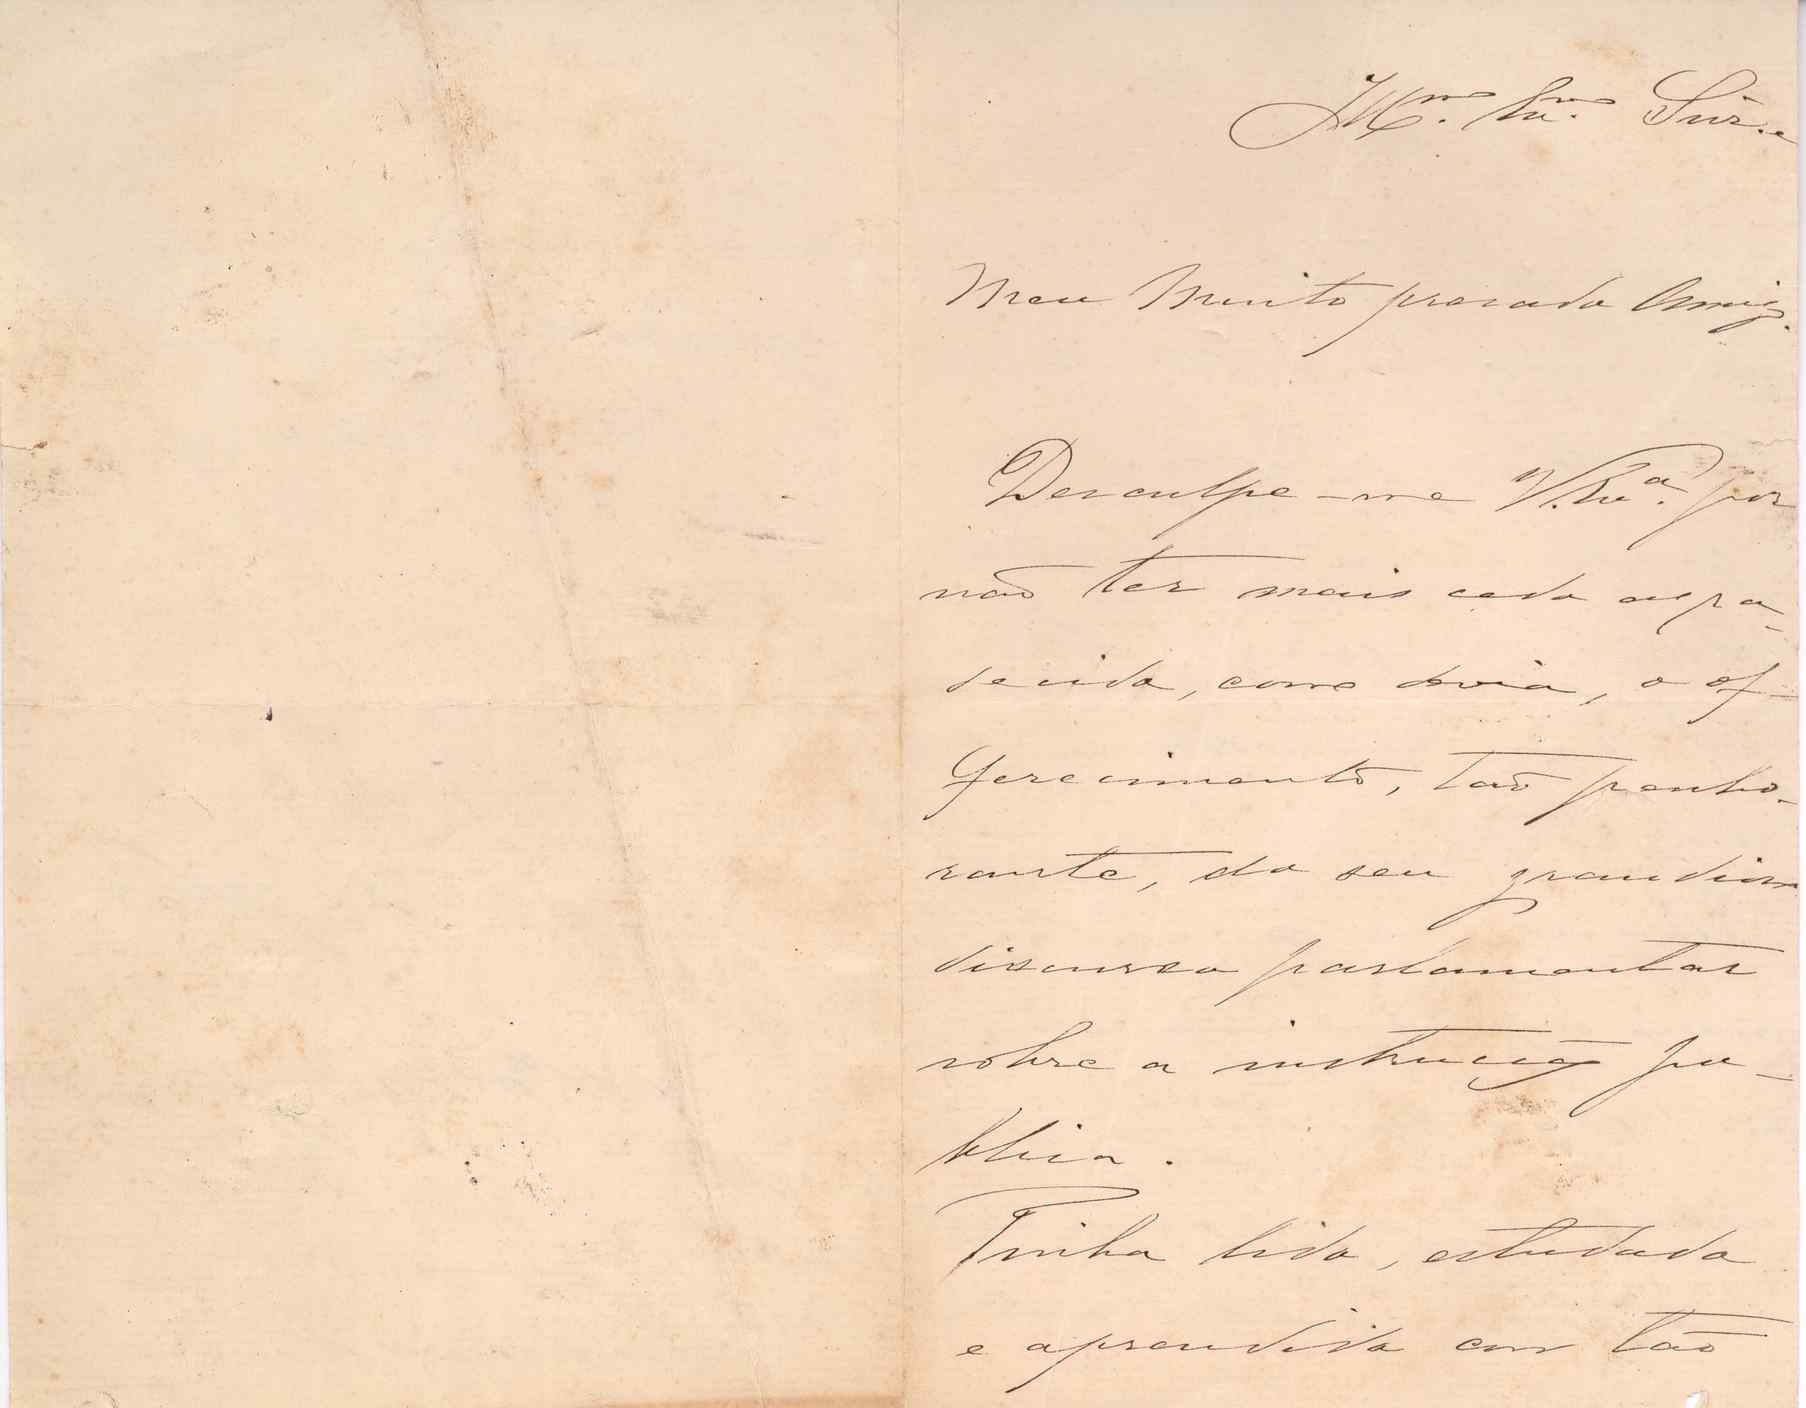 Illmo. Exmo. Snr.
Meu Muito presado Amigo.
Desculpe-me V. Exa. por
não ter mais cedo agra-
decido, como devia, o of-
ferecimento, tão penho-
rante, do seu grandioso
discurso parlamentar
sobre a instrucção pu-
blica.
Tinha lido, estudado
e aprendido em tão